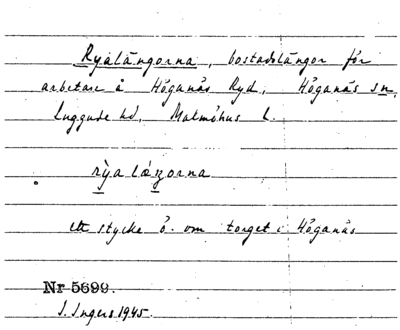 Ryalängorna, bostadslängor för
arbetare å Höganäs Ryd, Höganäs sn,
Luggude hd, Malmöhus l.
rỳa læŋorna
ett stycke ö. om torget i Höganäs
Nr 5699.
I. Ingers 1945.